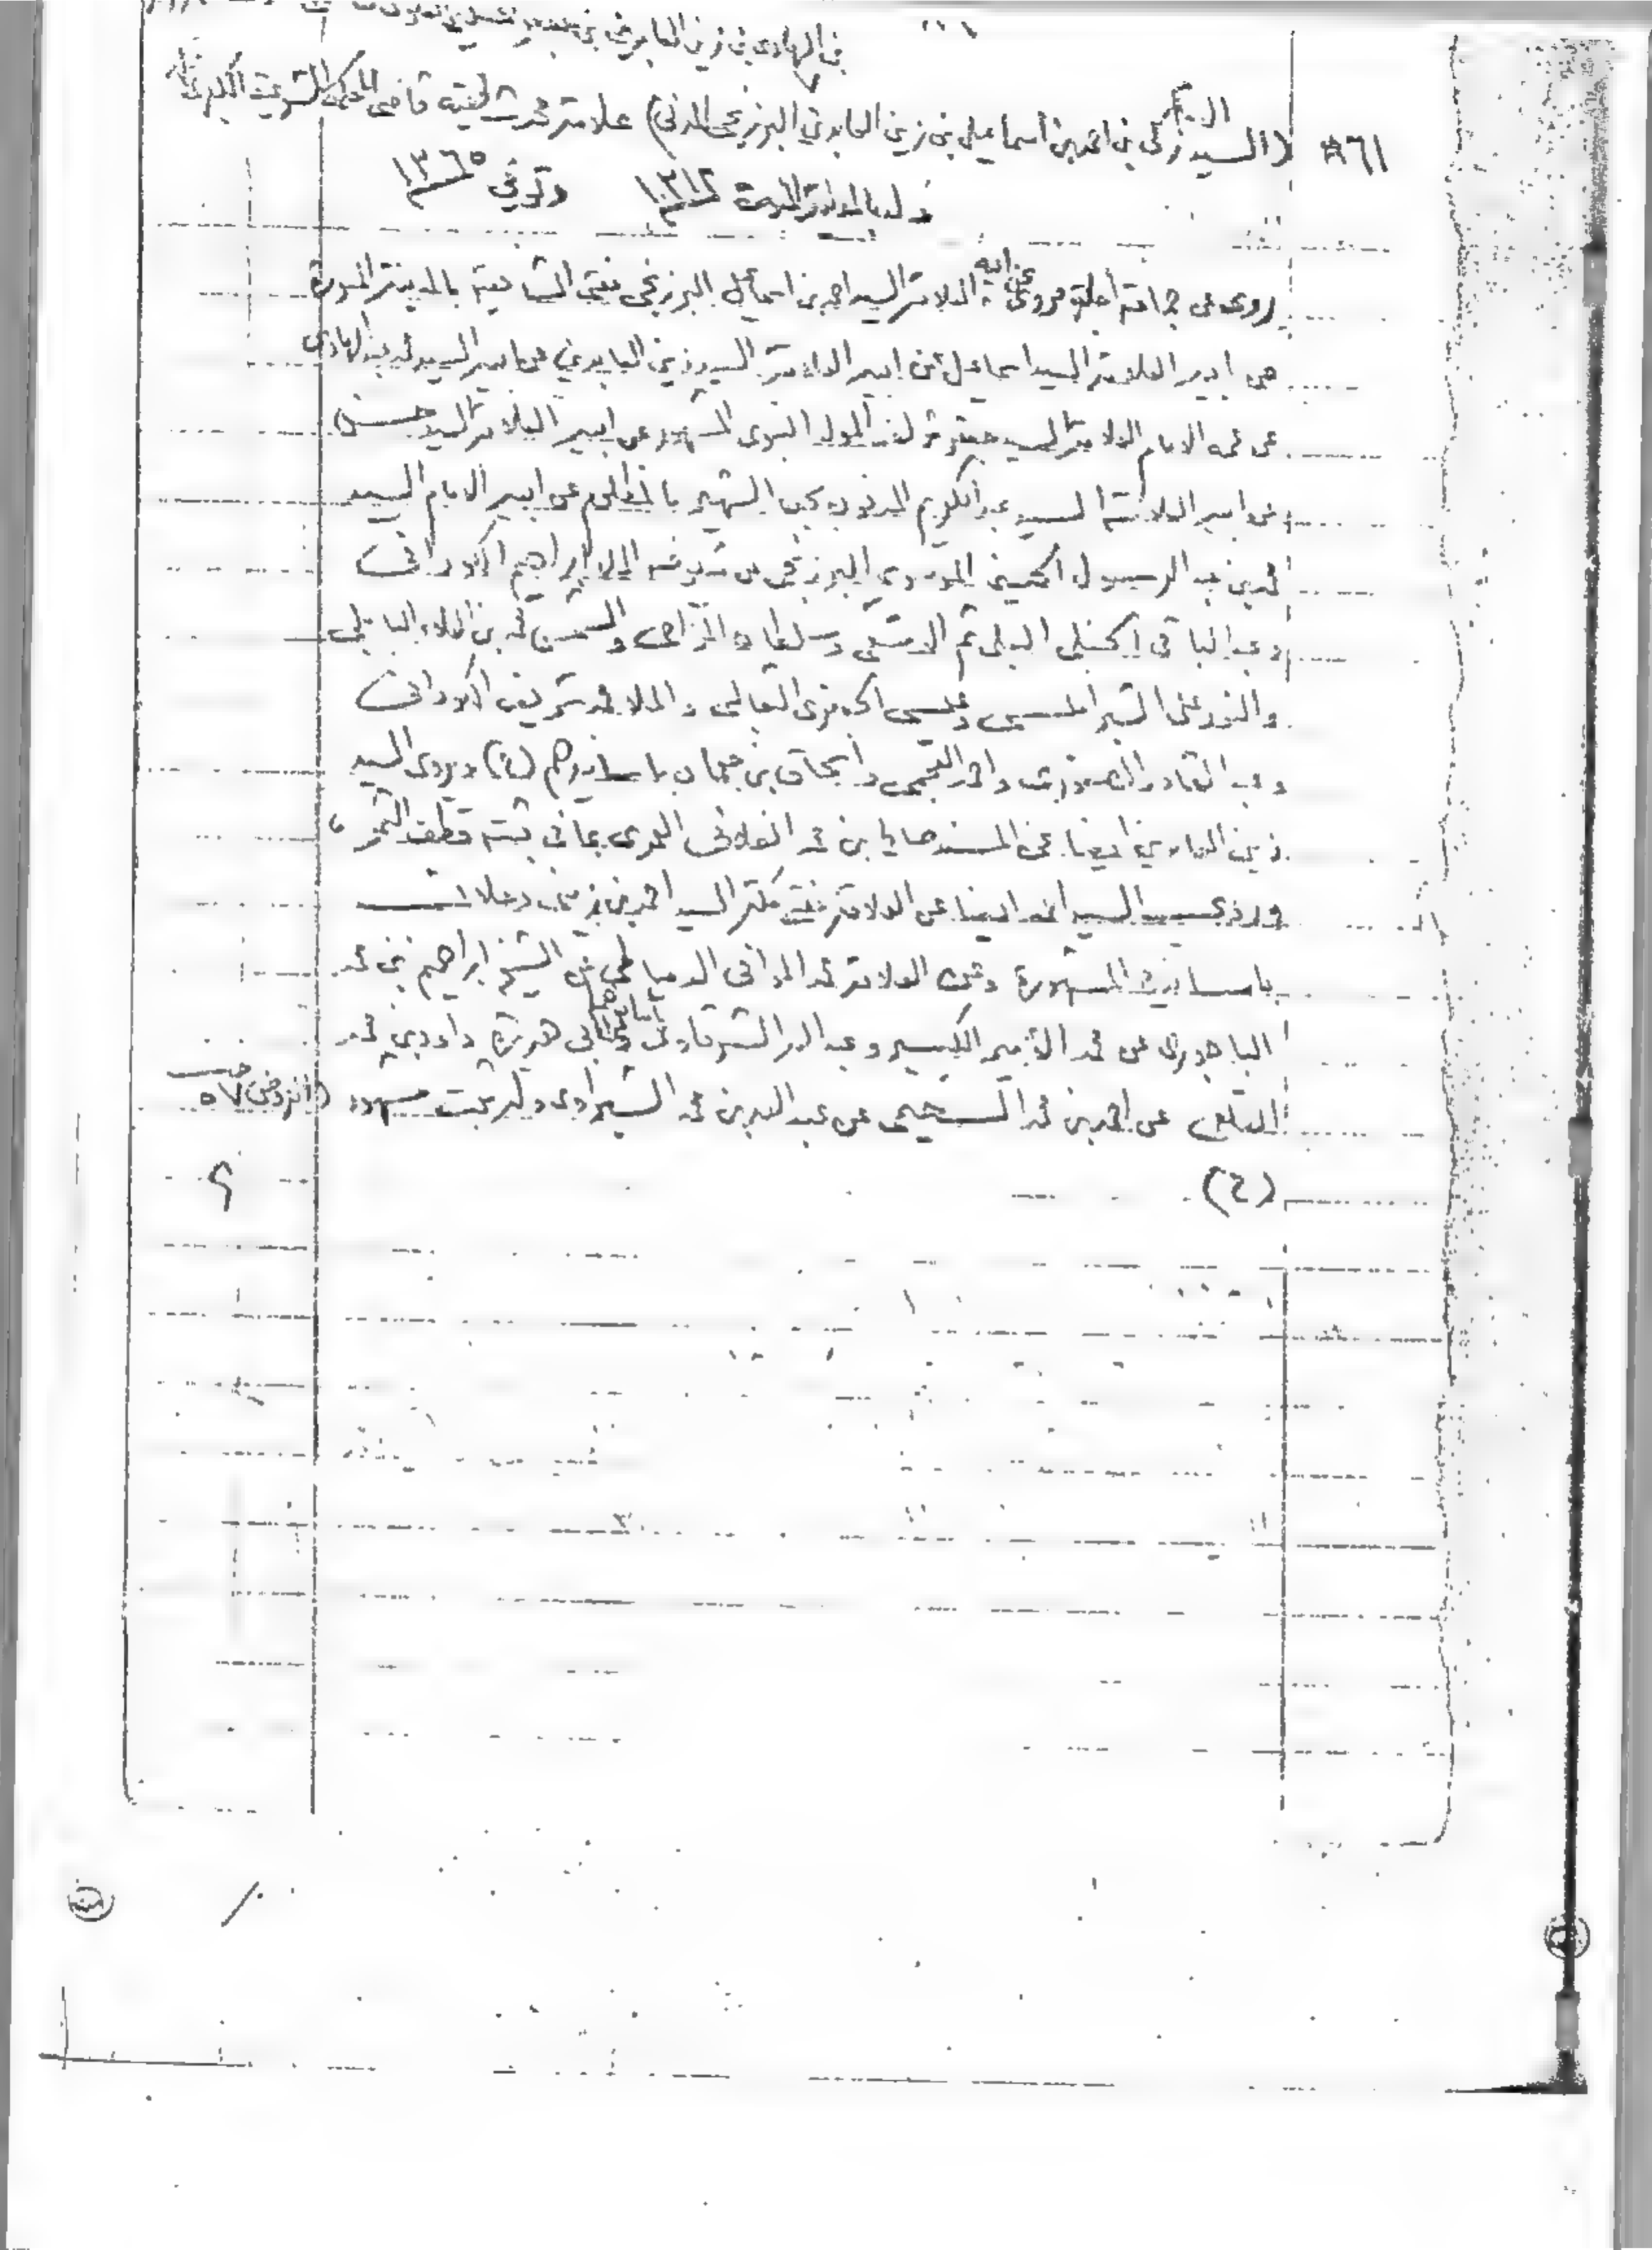 بن الهادي بن زين العابدين بن
٨٦١ (السيد زكي بن احمد بن اسماعيل بن زين العابدين البرزنجي المدني) علامة محدث فقيه قاضي المحكمة الشرعية الكبرى
ولد بالمدينة المنورة وتوفي ١٣٦٥
روى عن جماعة أجلة فروى عن ابيه العلامة السيد احمد بن اسماعيل البرزنجي مفتي الشافعية بالمدينة المنورة
عن ابيه العلامة السيد اسماعيل عن ابيه العلامة السيد زين العابدين عن ابيه السيد محمد الهادي
عن عمه الامام العلامة السيد جعفر مؤلف المولد النبوي المشهور عن ابيه العلامة السيد حسن
عن ابيه العلامة السيد عبد الكريم المدفون بجدة الشهير بالمظلوم عن ابيه الامام السيد
محمد بن عبد الرسول الحسيني الموسوي البرزنجي عن شيوخه الملا ابراهيم الكوراني
وعبد الباقي الحنبلي البعلي ثم الدمشقي وسلطان المزاحي والشمس محمد بن العلاء البابلي
والنور علي الشبراملسي وعيسى الجعفري الثعالبي والملا محمد شريف الكوراني
وعبد القادر الصفوري واحمد العجمي واسحاق بن جعمان باسانيدهم (ح) ويروي السيد
زين العابدين ايضا عن المسند صالح بن محمد الفلاني العمري بما في ثبته قطف الثمر
ويروي السيد احمد ايضا عن العلامة مفتي مكة السيد احمد بن زيني دحلان
باسانيده المشهورة وعن العلامة محمد الموافي الدمياطي عن الشيخ ابراهيم بن محمد
الباجوري عن محمد الأمير الكبير وعبد الله الشرقاوي باسانيدهما وعن ابي هريرة داود بن محمد
القلعي عن احمد بن محمد السحيمي عن عبد الله بن محمد الشبراوي وله ثبت مشهور
(ح)